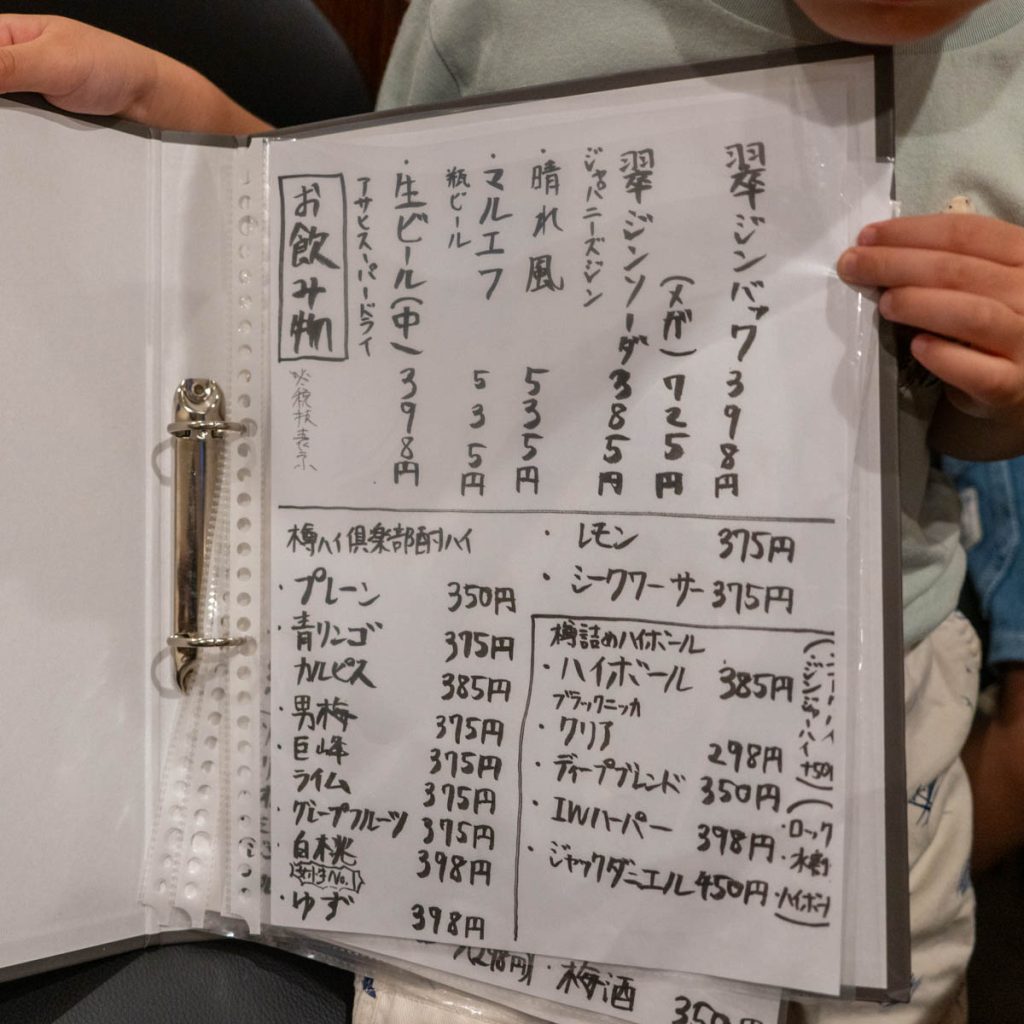 お飲み物
アサヒスーパードライ
・生ビール(中) 398円
瓶ビール
・マルエフ 535円
・晴れ風 535円
ジャパニーズジン
翠ジンソーダ 385円
(メガ) 725円
翠ジンバック 398円
樽ハイ倶楽部酎ハイ
・プレーン 350円
・青リンゴ 375円
カルピス 385円
・男梅 375円
・巨峰 375円
ライム 375円
・グレープフルーツ 375円
・白桃 398円
No.1
・ゆず 398円
・レモン 375円
・シークワーサー 375円
樽詰めハイボール
・ハイボール 385円
ブラックニッカ
・クリア 298円
・ディープブレンド 350円
・IWハーパー 398円
・ジャックダニエル 450円
(・ロック
・水割
・ハイボール)
(298円)
・梅酒 350